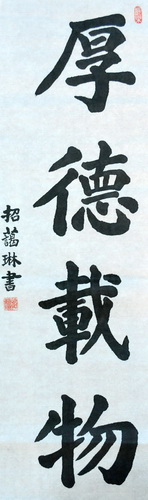 厚德載物
招蕅琳書